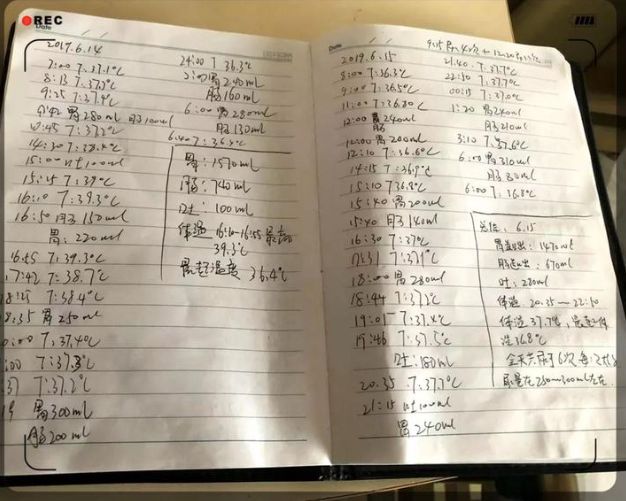 REC
Date
2019.6.14
7:00 T:37.1℃
8:13 T:37.3℃
9:25 T:37.4℃
胃280ml 肠100ml
T:37.3℃
14:30 T:38.4℃
15:00 吐100ml
15:25 T:39℃
16:10 T:39.3℃
16:50 肠150ml
胃:220ml
16:55 T:39.3℃
17:42 T:38.7℃
T:38.4℃
18:35 胃250ml
T:37.4℃
T:37.3℃
T:37.2℃
胃300ml
肠200ml
24:00 T 36.3℃
胃240ml
肠160ml
6:00 胃280ml
肠130ml
T:36.3℃
胃:1570ml
肠:740ml
吐:100ml
体温 16:10-16:55 最高
39.3℃
最低温度 36.4℃
Date
2019.6.15
8:00 T:36.3℃
9:00 T:36.5℃
11:00 T:36.8℃
12:00 胃240ml
肠
12:00 胃200ml
12:10 T:36.6℃
14:15 T:36.9℃
15:10 T36.8℃
15:40 胃200ml
15:40 肠140ml
16:30 T:37℃
T:37.1℃
18:00 胃280ml
18:44 T:37.3℃
19:01 T:37.4℃
19:46 T:37.5℃
吐:180ml
20:35 T:37.7℃
21:15 吐100ml
胃240ml
21:40 T:37.7℃
22:50 T:37.7℃
00:15 T:37.0℃
1:20 胃240ml
肠210ml
3:10 T:37.6℃
6:00 胃310ml
肠
6:00 T:36.8℃
总结:6.15
胃造出:1470ml
肠造出:670ml
吐:280ml
体温 20:35—22:50
体温37.7℃,最低体
温36.8℃
尿量在250ml~300ml左右